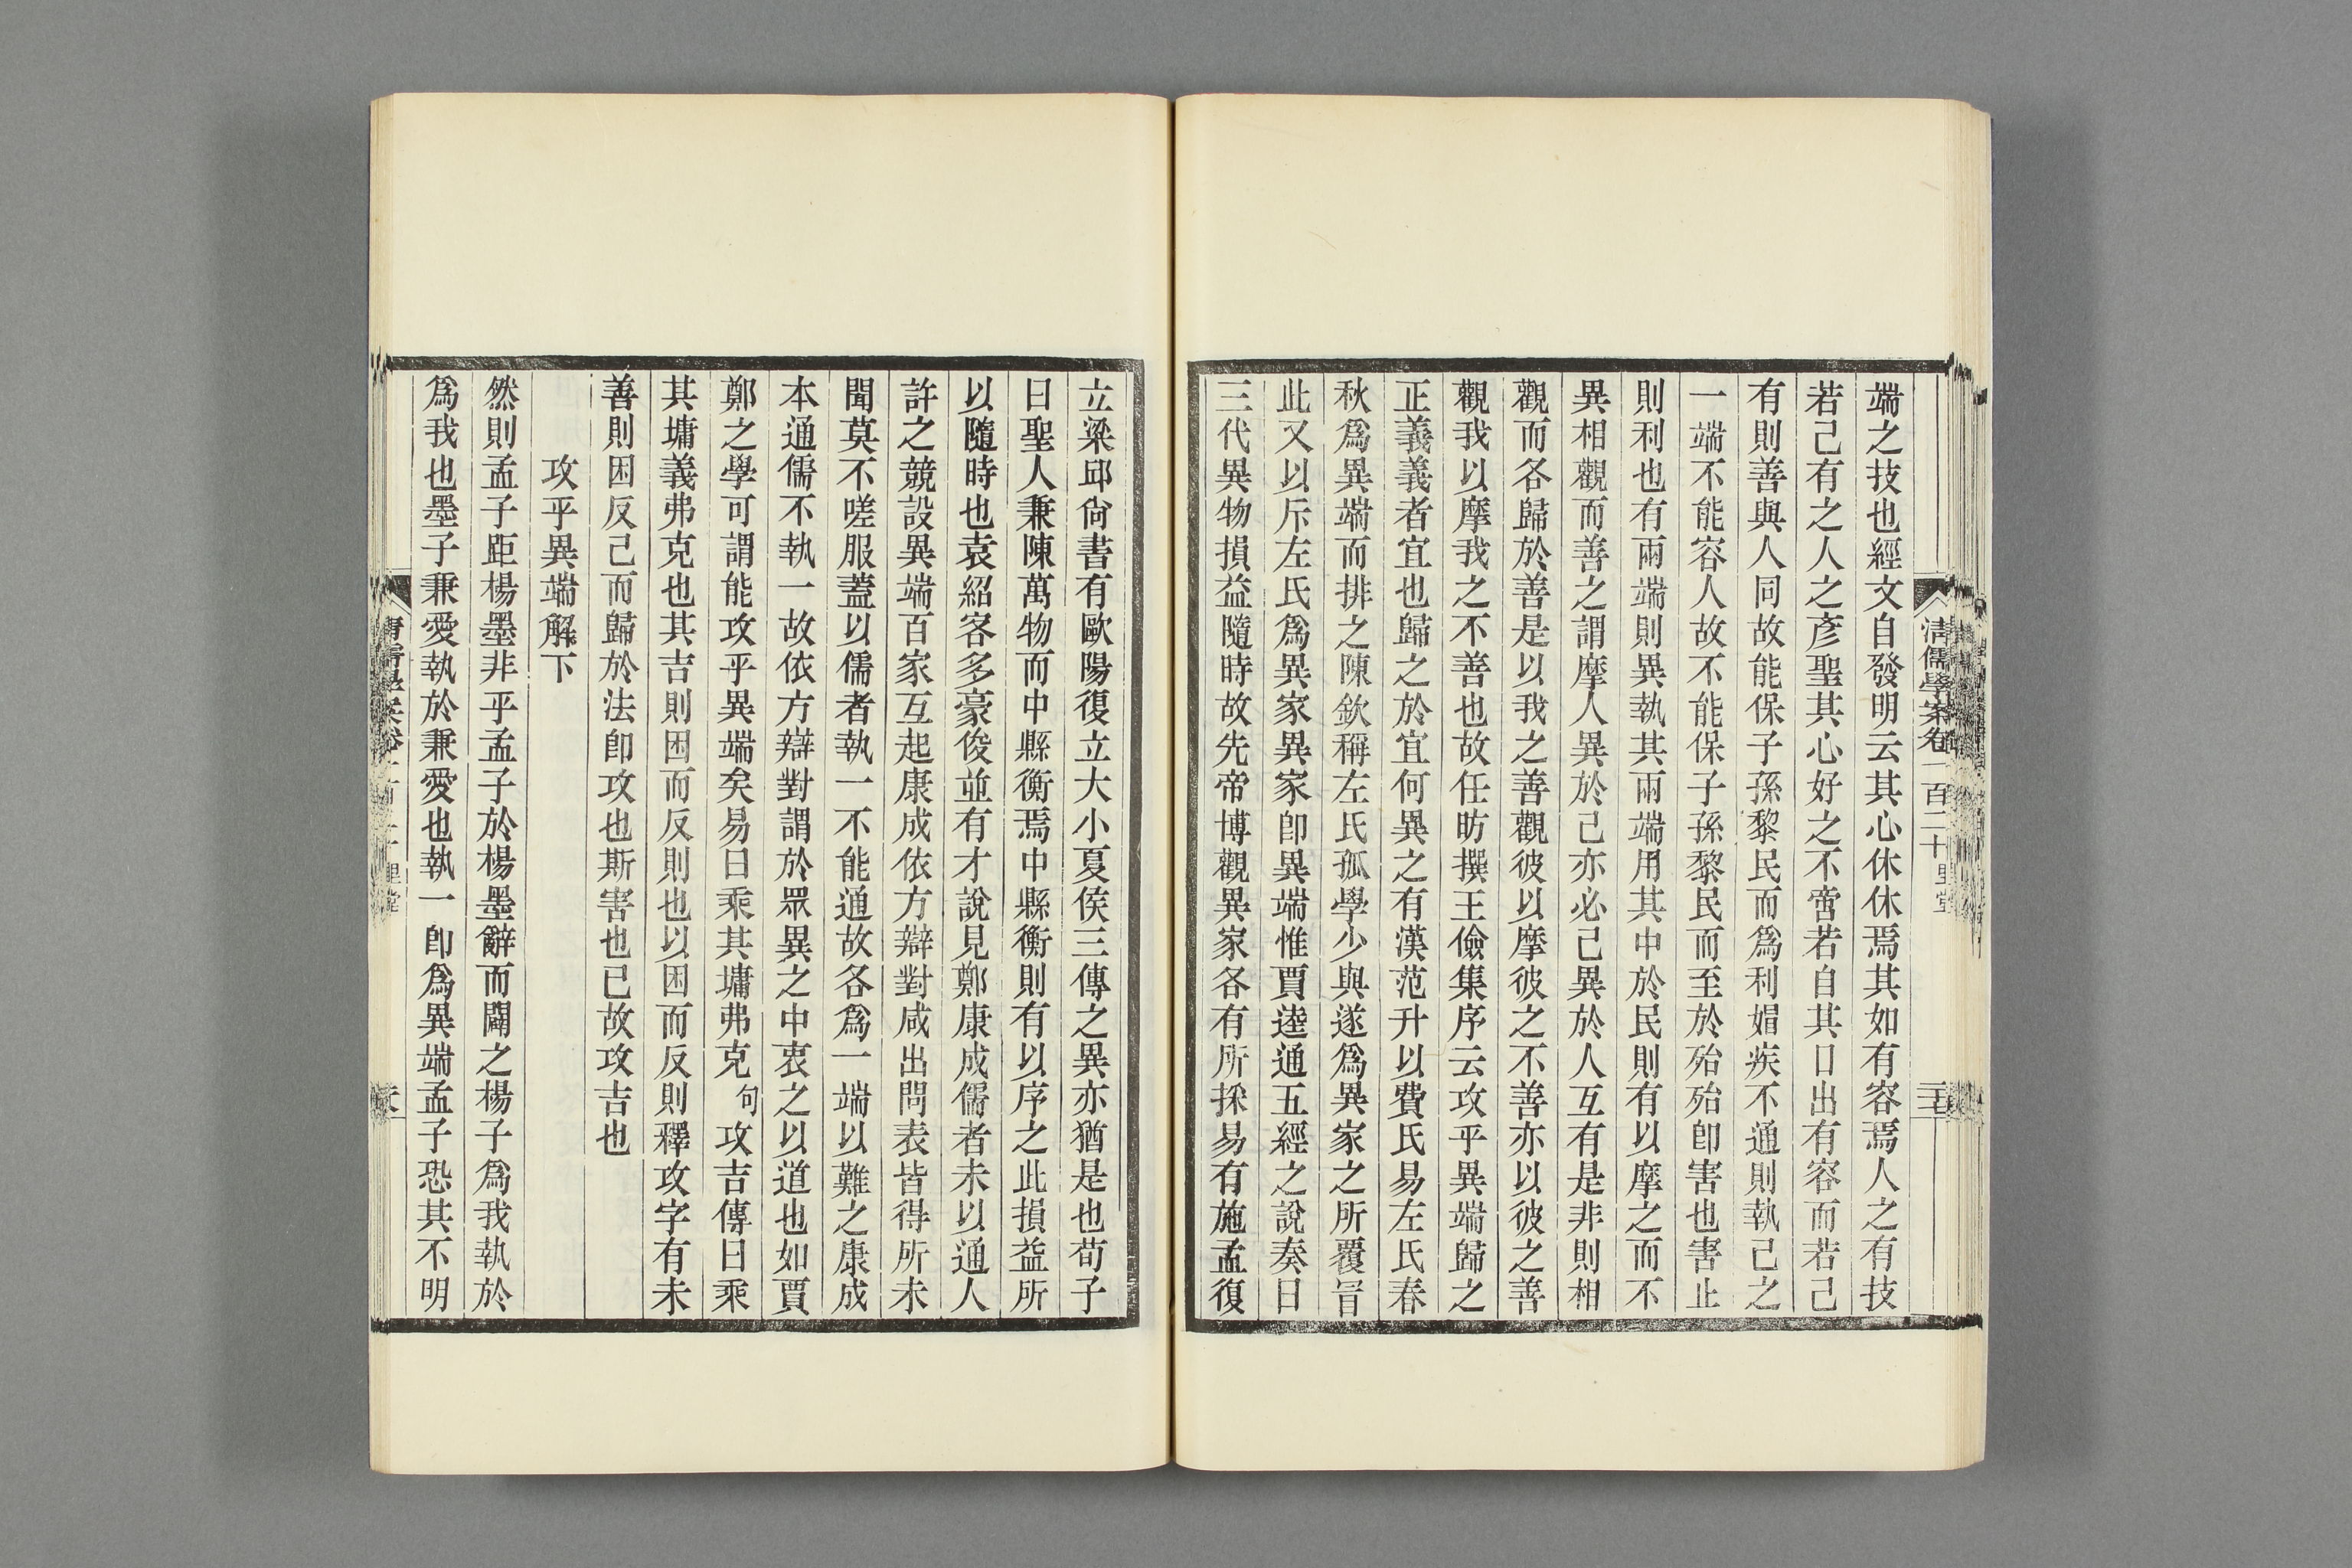 清儒學案卷一百二十 里堂
端之技也經文自發明云其心休休焉其如有容焉人之有技
若己有之人之彥聖其心好之不啻若自其口出有容而若己
有則善與人同故能保子孫黎民而爲利媢疾不通則執己之
一端不能容人故不能保子孫黎民而至於殆殆卽害也害止
則利也有兩端則異執其兩端用其中於民則有以摩之而不
異相觀而善之謂摩人異於己亦必己異於人互有是非則相
觀而各歸於善是以我之善觀彼以摩彼之不善亦以彼之善
觀我以摩我之不善也故任昉撰王儉集序云攻乎異端歸之
正義義者宜也歸之於宜何異之有漢范升以費氏易左氏春
秋爲異端而排之陳欽稱左氏孤學少與遂爲異家之所覆冒
此又以斥左氏爲異家異家卽異端惟賈逵通五經之說奏曰
三代異物損益隨時故先帝博觀異家各有所採易有施孟復
立梁邱尙書有歐陽復立大小夏侯三傳之異亦猶是也荀子
曰聖人兼陳萬物而中縣衡焉中縣衡則有以序之此損益所
以隨時也袁紹客多豪俊並有才說見鄭康成儒者未以通人
許之競設異端百家互起康成依方辯對咸出問表皆得所未
聞莫不嗟服蓋以儒者執一不能通故各爲一端以難之康成
本通儒不執一故依方辯對謂於眾異之中衷之以道也如賈
鄭之學可謂能攻乎異端矣易曰乘其墉弗克句攻吉傳曰乘
其墉義弗克也其吉則困而反則也以困而反則釋攻字有未
善則困反己而歸於法卽攻也斯害也已故攻吉也
攻乎異端解下
然則孟子距楊墨非乎孟子於楊墨辭而闢之楊子爲我執於
爲我也墨子兼愛執於兼愛也執一卽爲異端孟子恐其不明